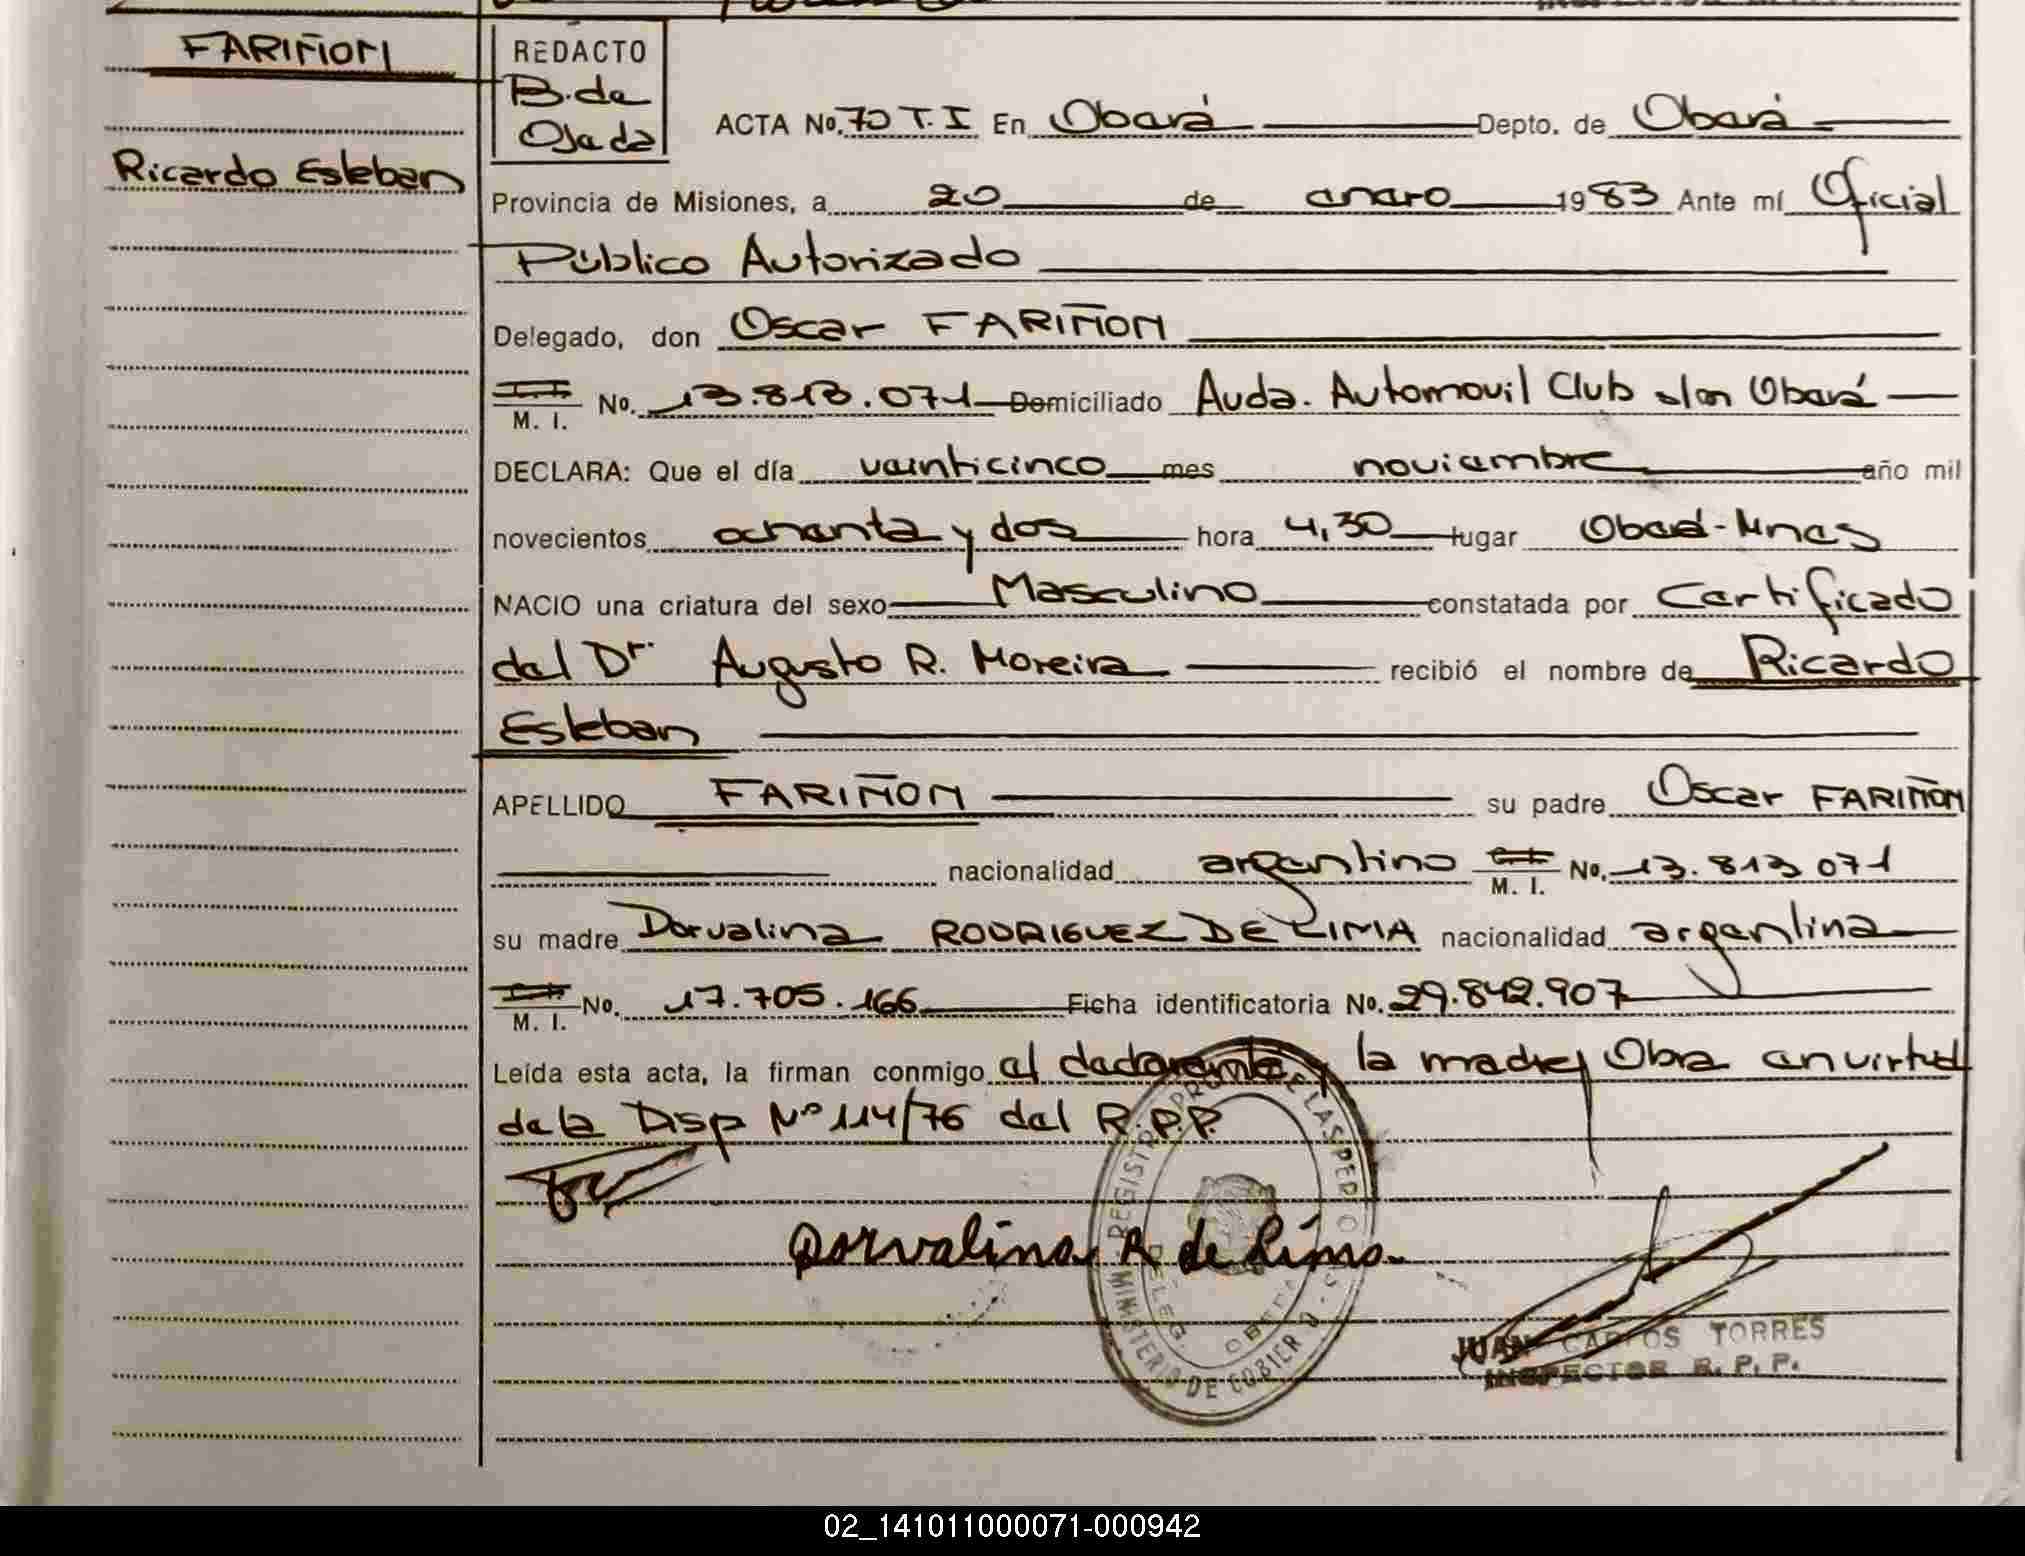 FARIÑON
Ricardo Esteban
REDACTO
B. de
Ojeda
ACTA No. 70 T. I En Oberá Depto. de Oberá
Provincia de Misiones, a 20 de enero 1983 Ante mí Oficial
Público Autorizado
Delegado, don Oscar FARIÑON
M. I. No. 13.813.071 Domiciliado Avda. Automovil Club s/n Oberá
DECLARA: Que el día veinticinco mes noviembre año mil
novecientos ochenta y dos hora 4,30 lugar Oberá-Mnes
NACIO una criatura del sexo Masculino constatada por Certificado
del Dr. Augusto R. Moreira recibió el nombre de Ricardo
Esteban
APELLIDO FARIÑON su padre Oscar FARIÑON
nacionalidad argentino M. I. No. 13.813 071
su madre Dorvalina RODRIGUEZ DE LIMA nacionalidad argentina
M. I. No. 17.705.166 Ficha identificatoria No. 29.842.907
Leída esta acta, la firman conmigo el declarante y la madre, Obra en virtud
de la Disp Nº 114/76 del R.P.P.
Dorvalina R de Lima.
REGISTRO PROV. DE LAS PERSONAS
MINISTERIO DE GOBIERNO
DELEG. OBERA
JUAN CARLOS TORRES
INSPECTOR R. P. P.
02_141011000071-000942